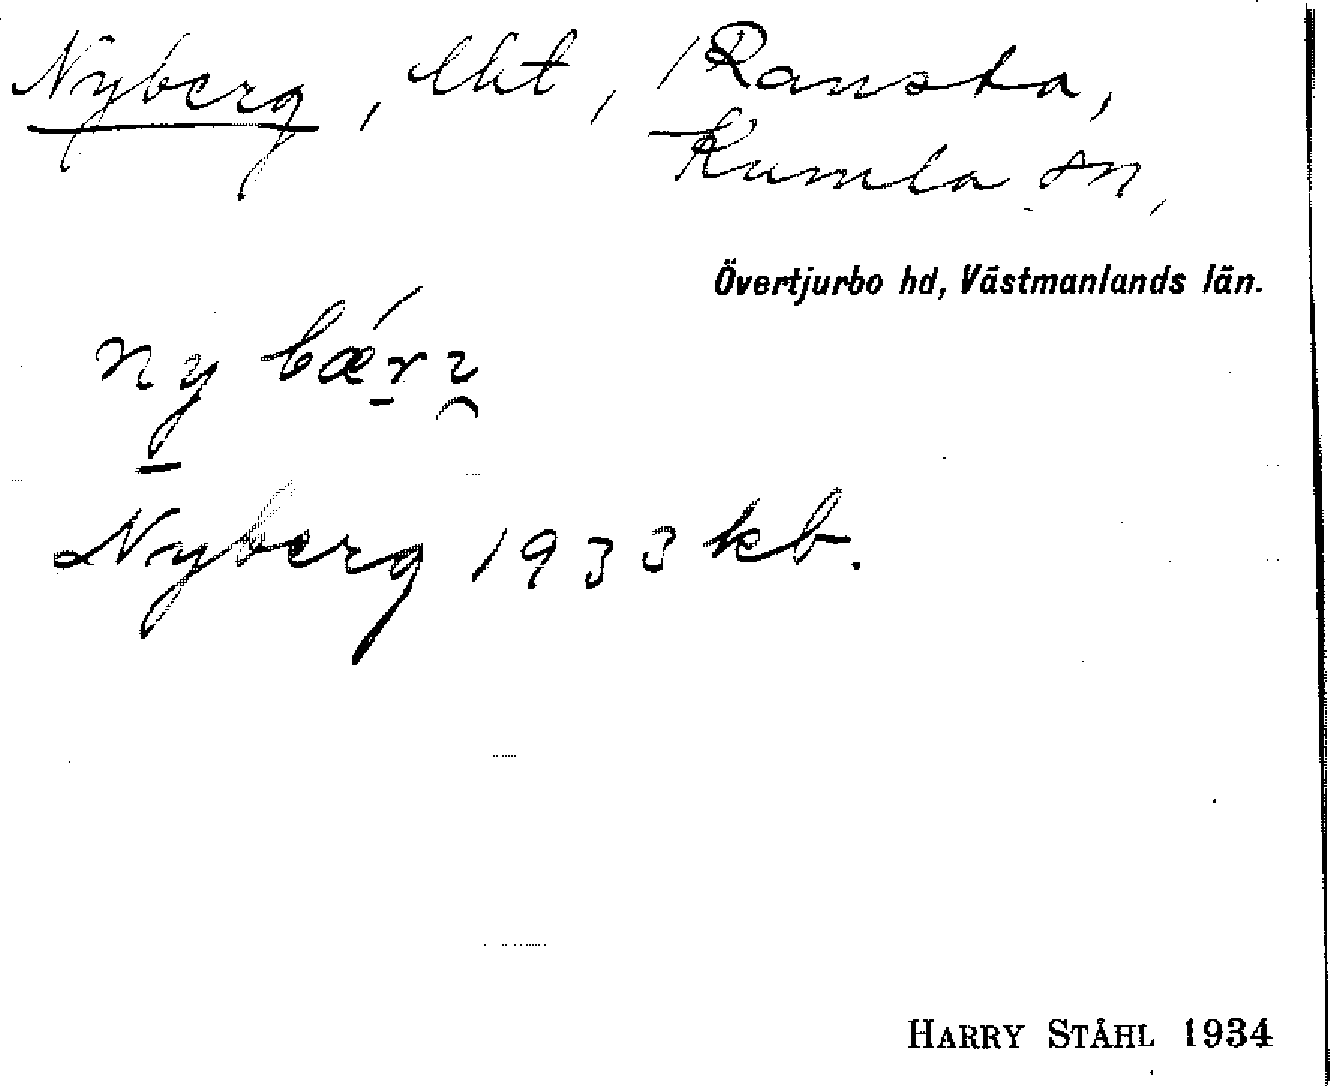 Nyberg, lht, Ransta,
Kumla sn,
Övertjurbo hd, Västmanlands län.
ny bǽr
Nyberg 1933 kb.
HARRY STÅHL 1934